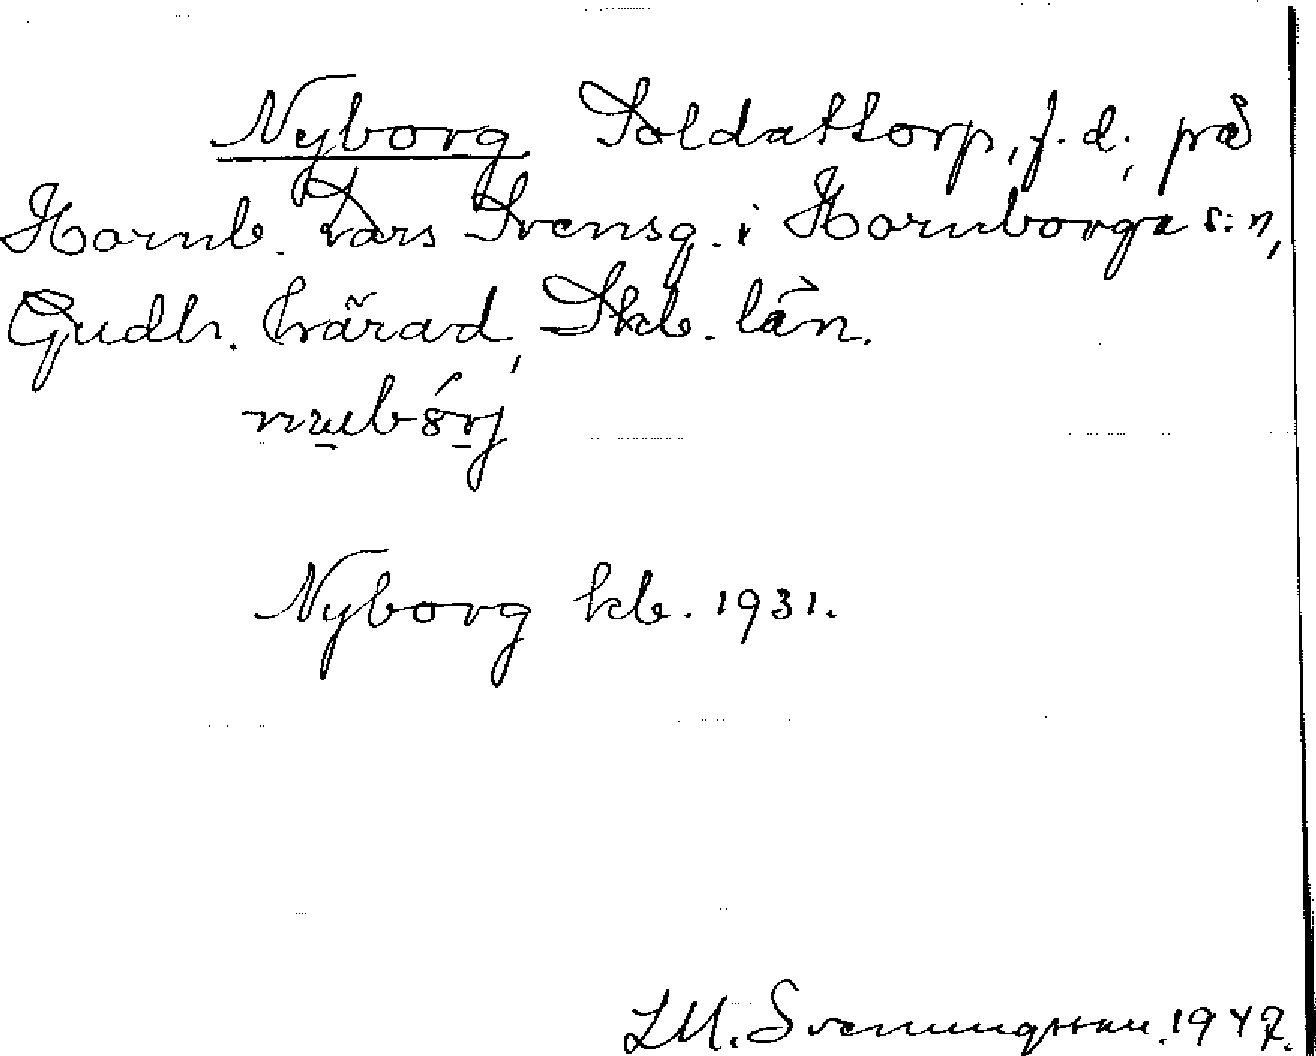 Nyborg Soldattorp, f. d., på
Hornb. Lars Svensg. i Hornborga s:n,
Gudh. härad, Skb. län.
Nyborg kb. 1931.
S. M. Svenningsson. 1947.